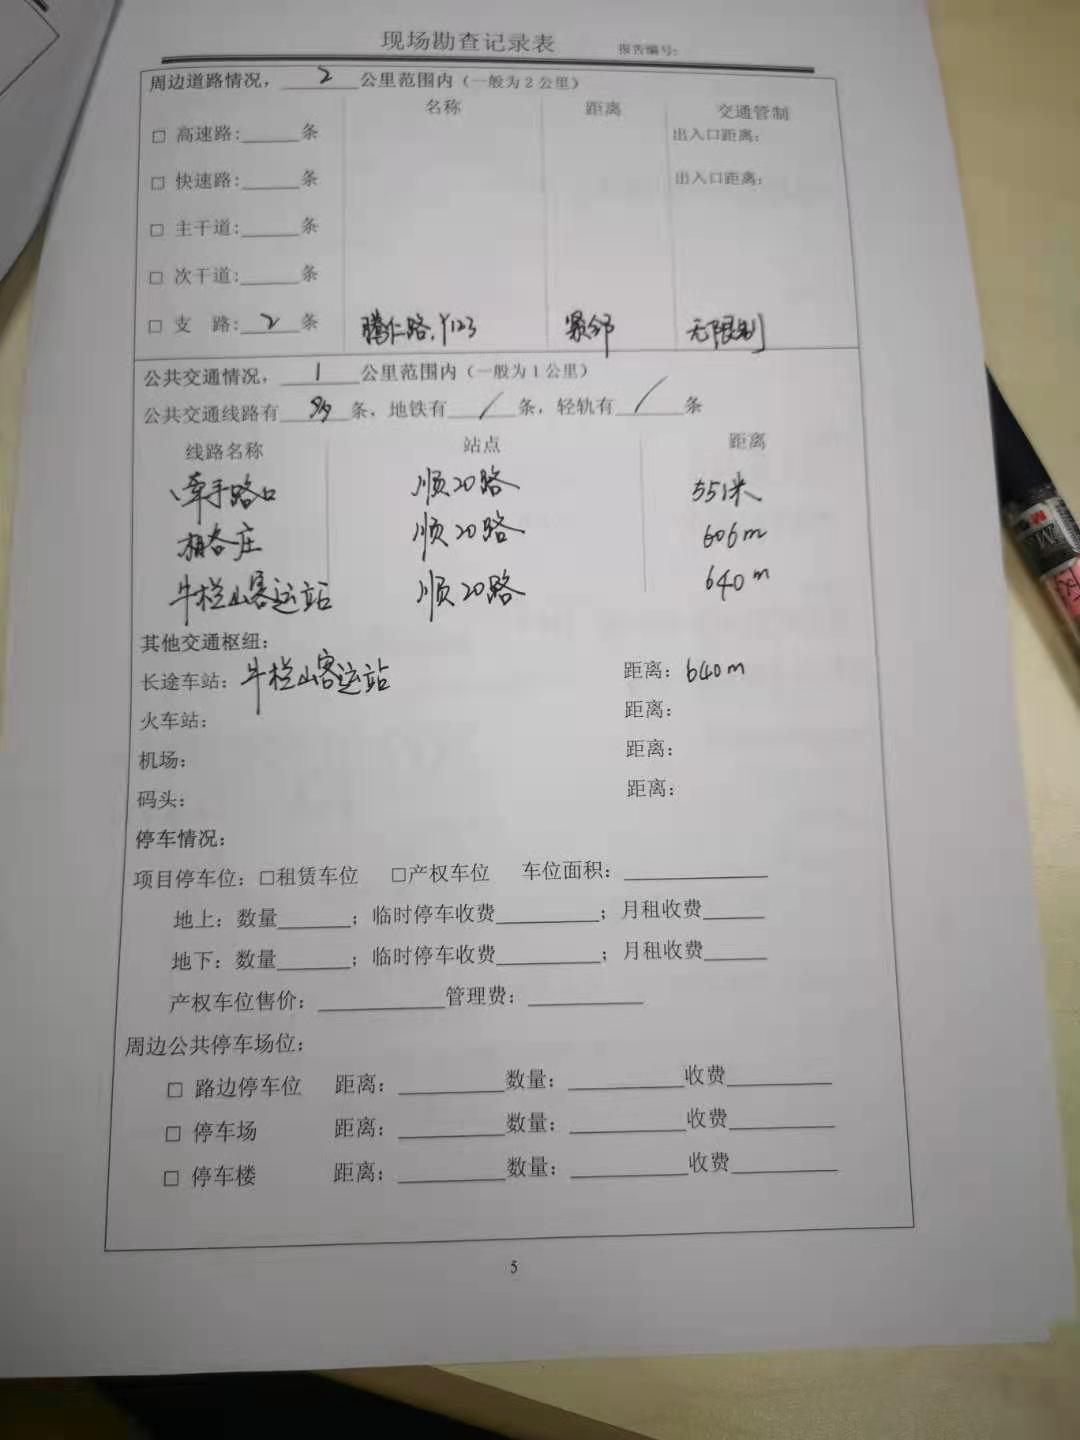 现场勘查记录表 报告编号:
周边道路情况，2公里范围内（一般为2公里）
名称 距离 交通管制
□ 高速路:_____条 出入口距离：
□ 快速路:_____条 出入口距离：
□ 主干道:_____条
□ 次干道:_____条
□ 支 路:2条 腾仁路,Y123 紧邻 无限制
公共交通情况，1公里范围内（一般为1公里）
公共交通线路有多条，地铁有/条，轻轨有/条
线路名称 站点 距离
牵手路口 顺20路 551米
相各庄 顺20路 606m
牛栏山客运站 顺20路 640m
其他交通枢纽：
长途车站：牛栏山客运站 距离：640m
火车站： 距离：
机场： 距离：
码头： 距离：
停车情况：
项目停车位：□租赁车位 □产权车位 车位面积：_____
地上：数量_____；临时停车收费_____；月租收费_____
地下：数量_____；临时停车收费_____；月租收费_____
产权车位售价：_____管理费：_____
周边公共停车场位：
□ 路边停车位 距离：_____数量：_____收费_____
□ 停车场 距离：_____数量：_____收费_____
□ 停车楼 距离：_____数量：_____收费_____
5